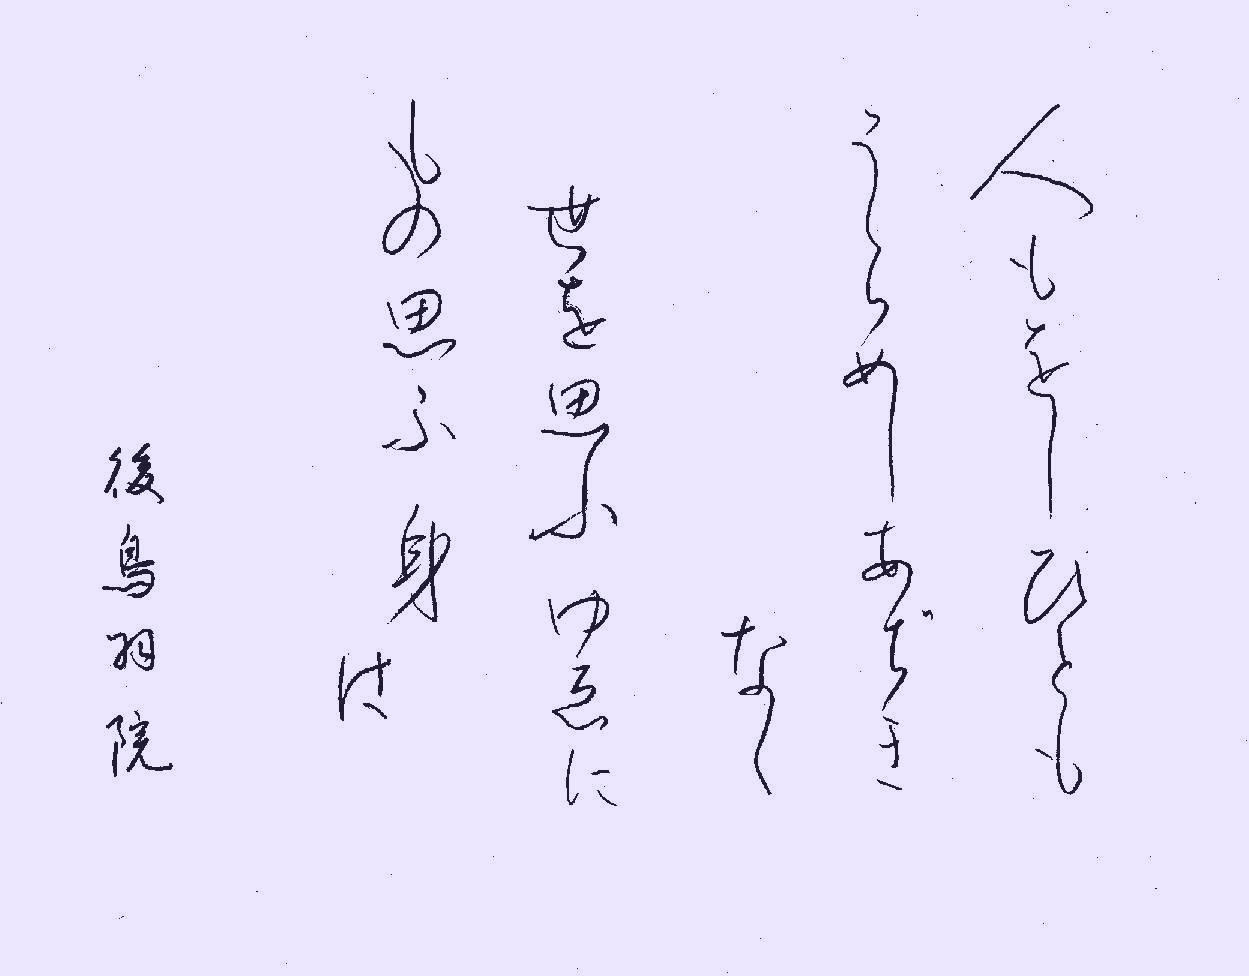 人もをしひとも
うらめしあぢき
なく
世を思ふゆゑに
もの思ふ身は
後鳥羽院